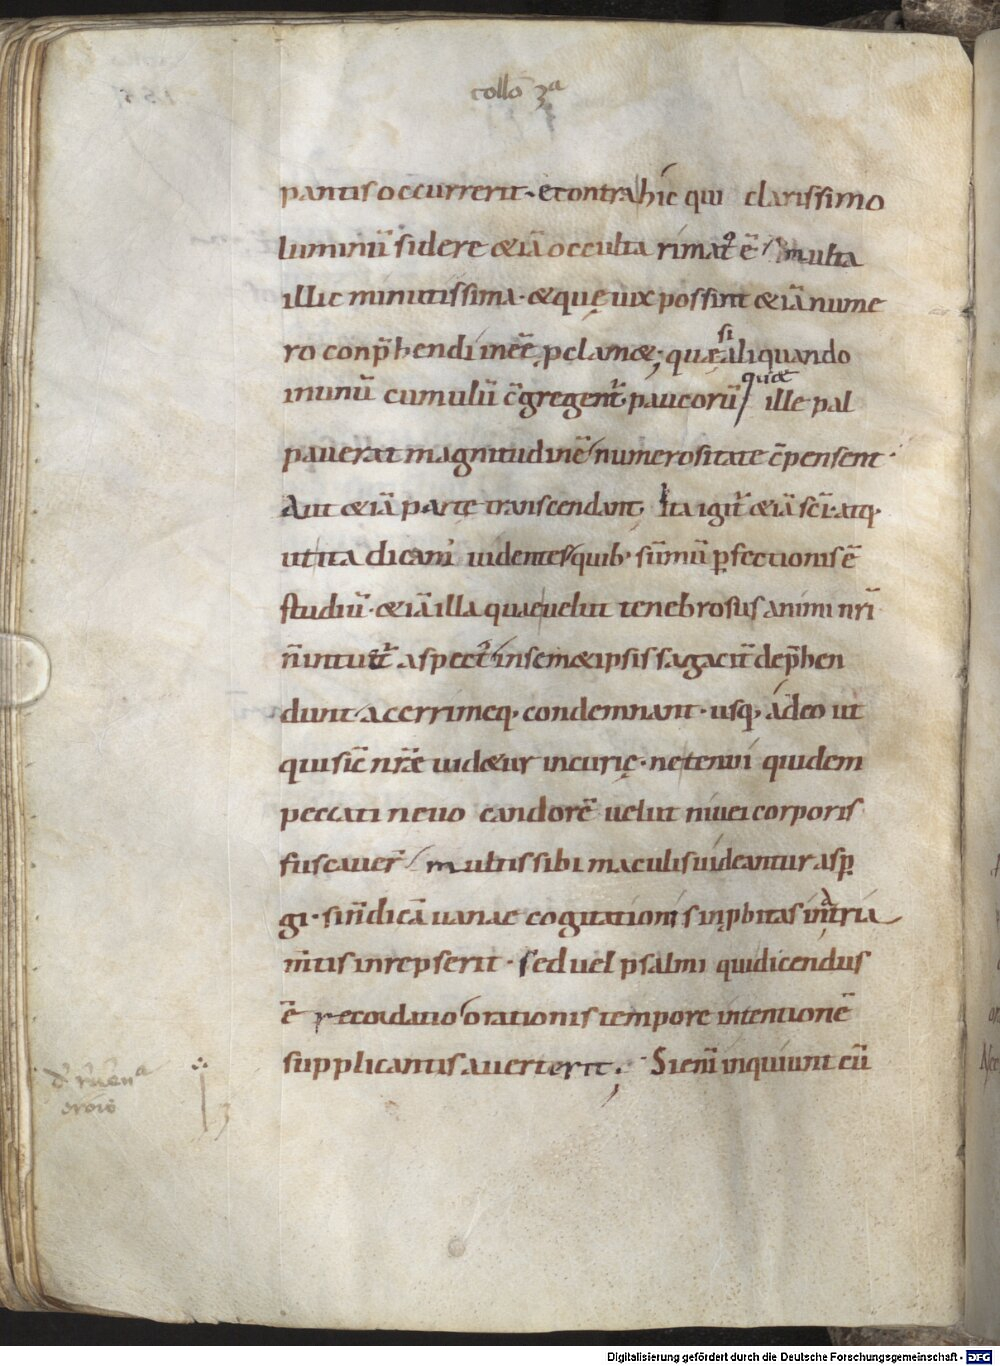 collō 3ᵃ
pantis occurrerit · et contra hic qui clarissimo
luminū sidere & iā occulta rimat᷒ ē multa
illic minutissima · & quę uix possint & iā nume
ro conp̄hendi ineē ꝓclam&; quę si aliquando
in unū cumulū c̄gregent᷒ · paucorū quae ille pal
pauerat magnitudinē numerositate c̄pensent ·
Aut & iā parte transcendant, Ita igit᷒ & iā sc̄i · atq·
ut ita dicam uidentes quib· sūmū ꝑfectionis ē
studiū · & iā illa quae uelut tenebrosus animi nr̄i
n̄ intuet᷒ aspect᷒ in sem& ipsis sagacit᷒ dep̄hen
dunt · acerrimeq· condemnant · usq· ádeo ut
qui sic̄ nr̄ae uid&ur incurię · ne tenui quidem
peccati neuo candorē uelut niuei corporis
fuscauer᷒ multis sibi maculis uideantur asꝑ
gi · si n̄ dicā uanae cogitationis inꝓbitas intra
mtis inrepserit · sed uel psalmi qui dicendus
ē recordatio orationis tempore intentionē
supplicantis auerterit; Si eni inquiunt cū
erōiō
3
Digitalisierung gefördert durch die Deutsche Forschungsgemeinschaft - DFG